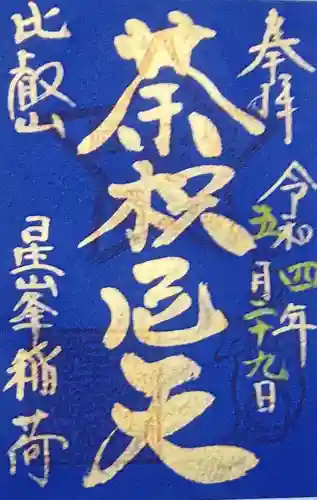 奉拝
令和四年
五月二十九日
荼枳尼天
比叡山
星峰稲荷